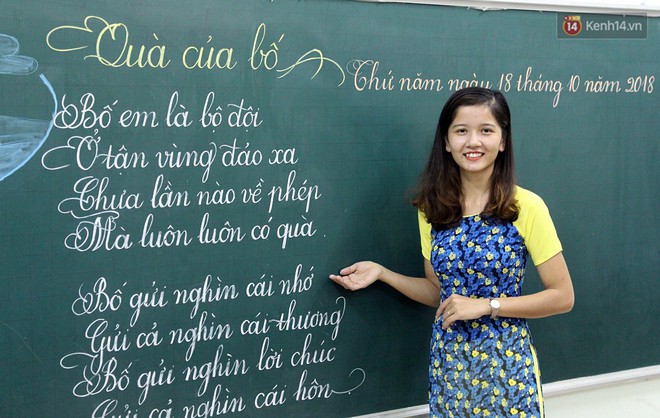 Kenh14.vn
Quà của bố
Thứ năm ngày 18 tháng 10 năm 2018
Bố em là bộ đội
Ở tận vùng đảo xa
Chưa lần nào về phép
Mà luôn luôn có quà.
Bố gửi nghìn cái nhớ
Gửi cả nghìn cái thương
Bố gửi nghìn lời chúc
Gửi cả nghìn cái hôn.